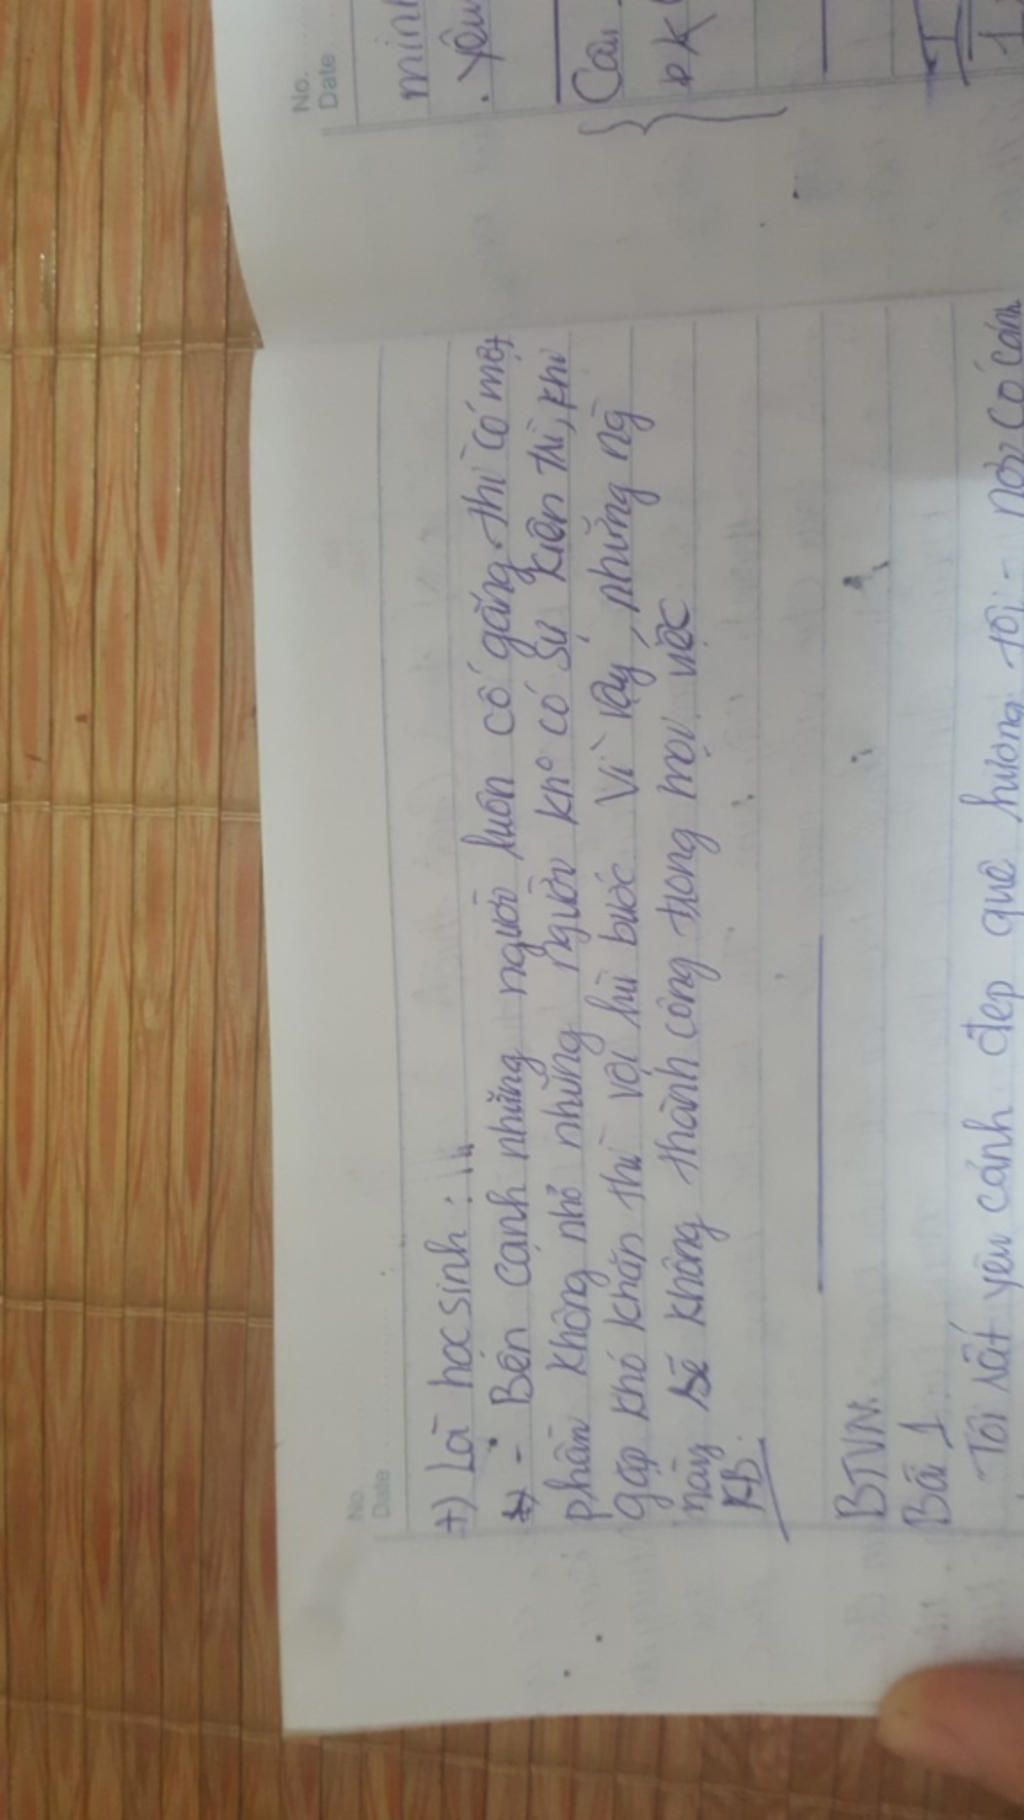 No.
Date
+) Là học sinh: ...
- Bên cạnh những người luôn cố gắng thì có một
phần không nhỏ những người kh° có sự kiên thì, khi
gặp khó khăn thì vội lùi bước. Vì vậy, những ng̀
này sẽ không thành công trong mọi việc
KB.
BTVN.
Bài 1
Tôi rất yêu cảnh đẹp quê hương tôi - nơi có cánh
No.
Date
minh
. yêu
Câu
ĐK
I
1